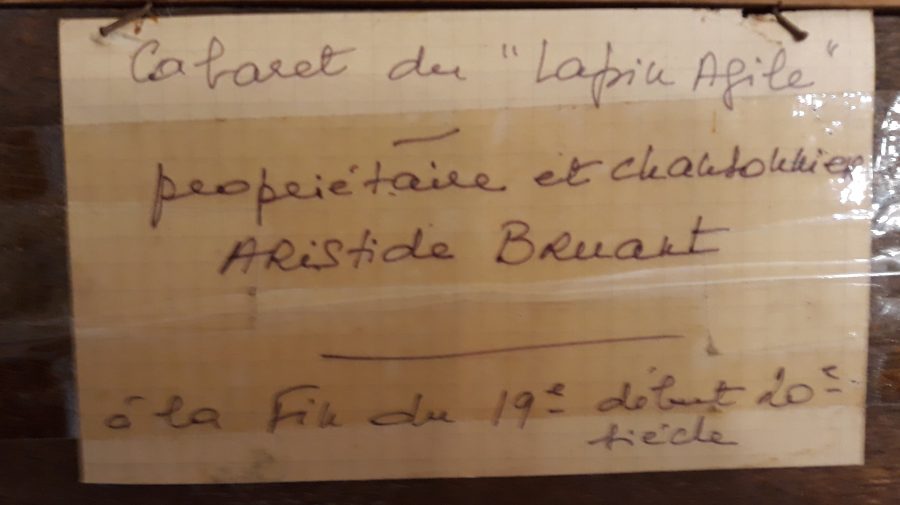 Cabaret du "Lapin Agile"
propriétaire et chansonnier
ARistide BRuant
à la Fin du 19e début 20e
siècle